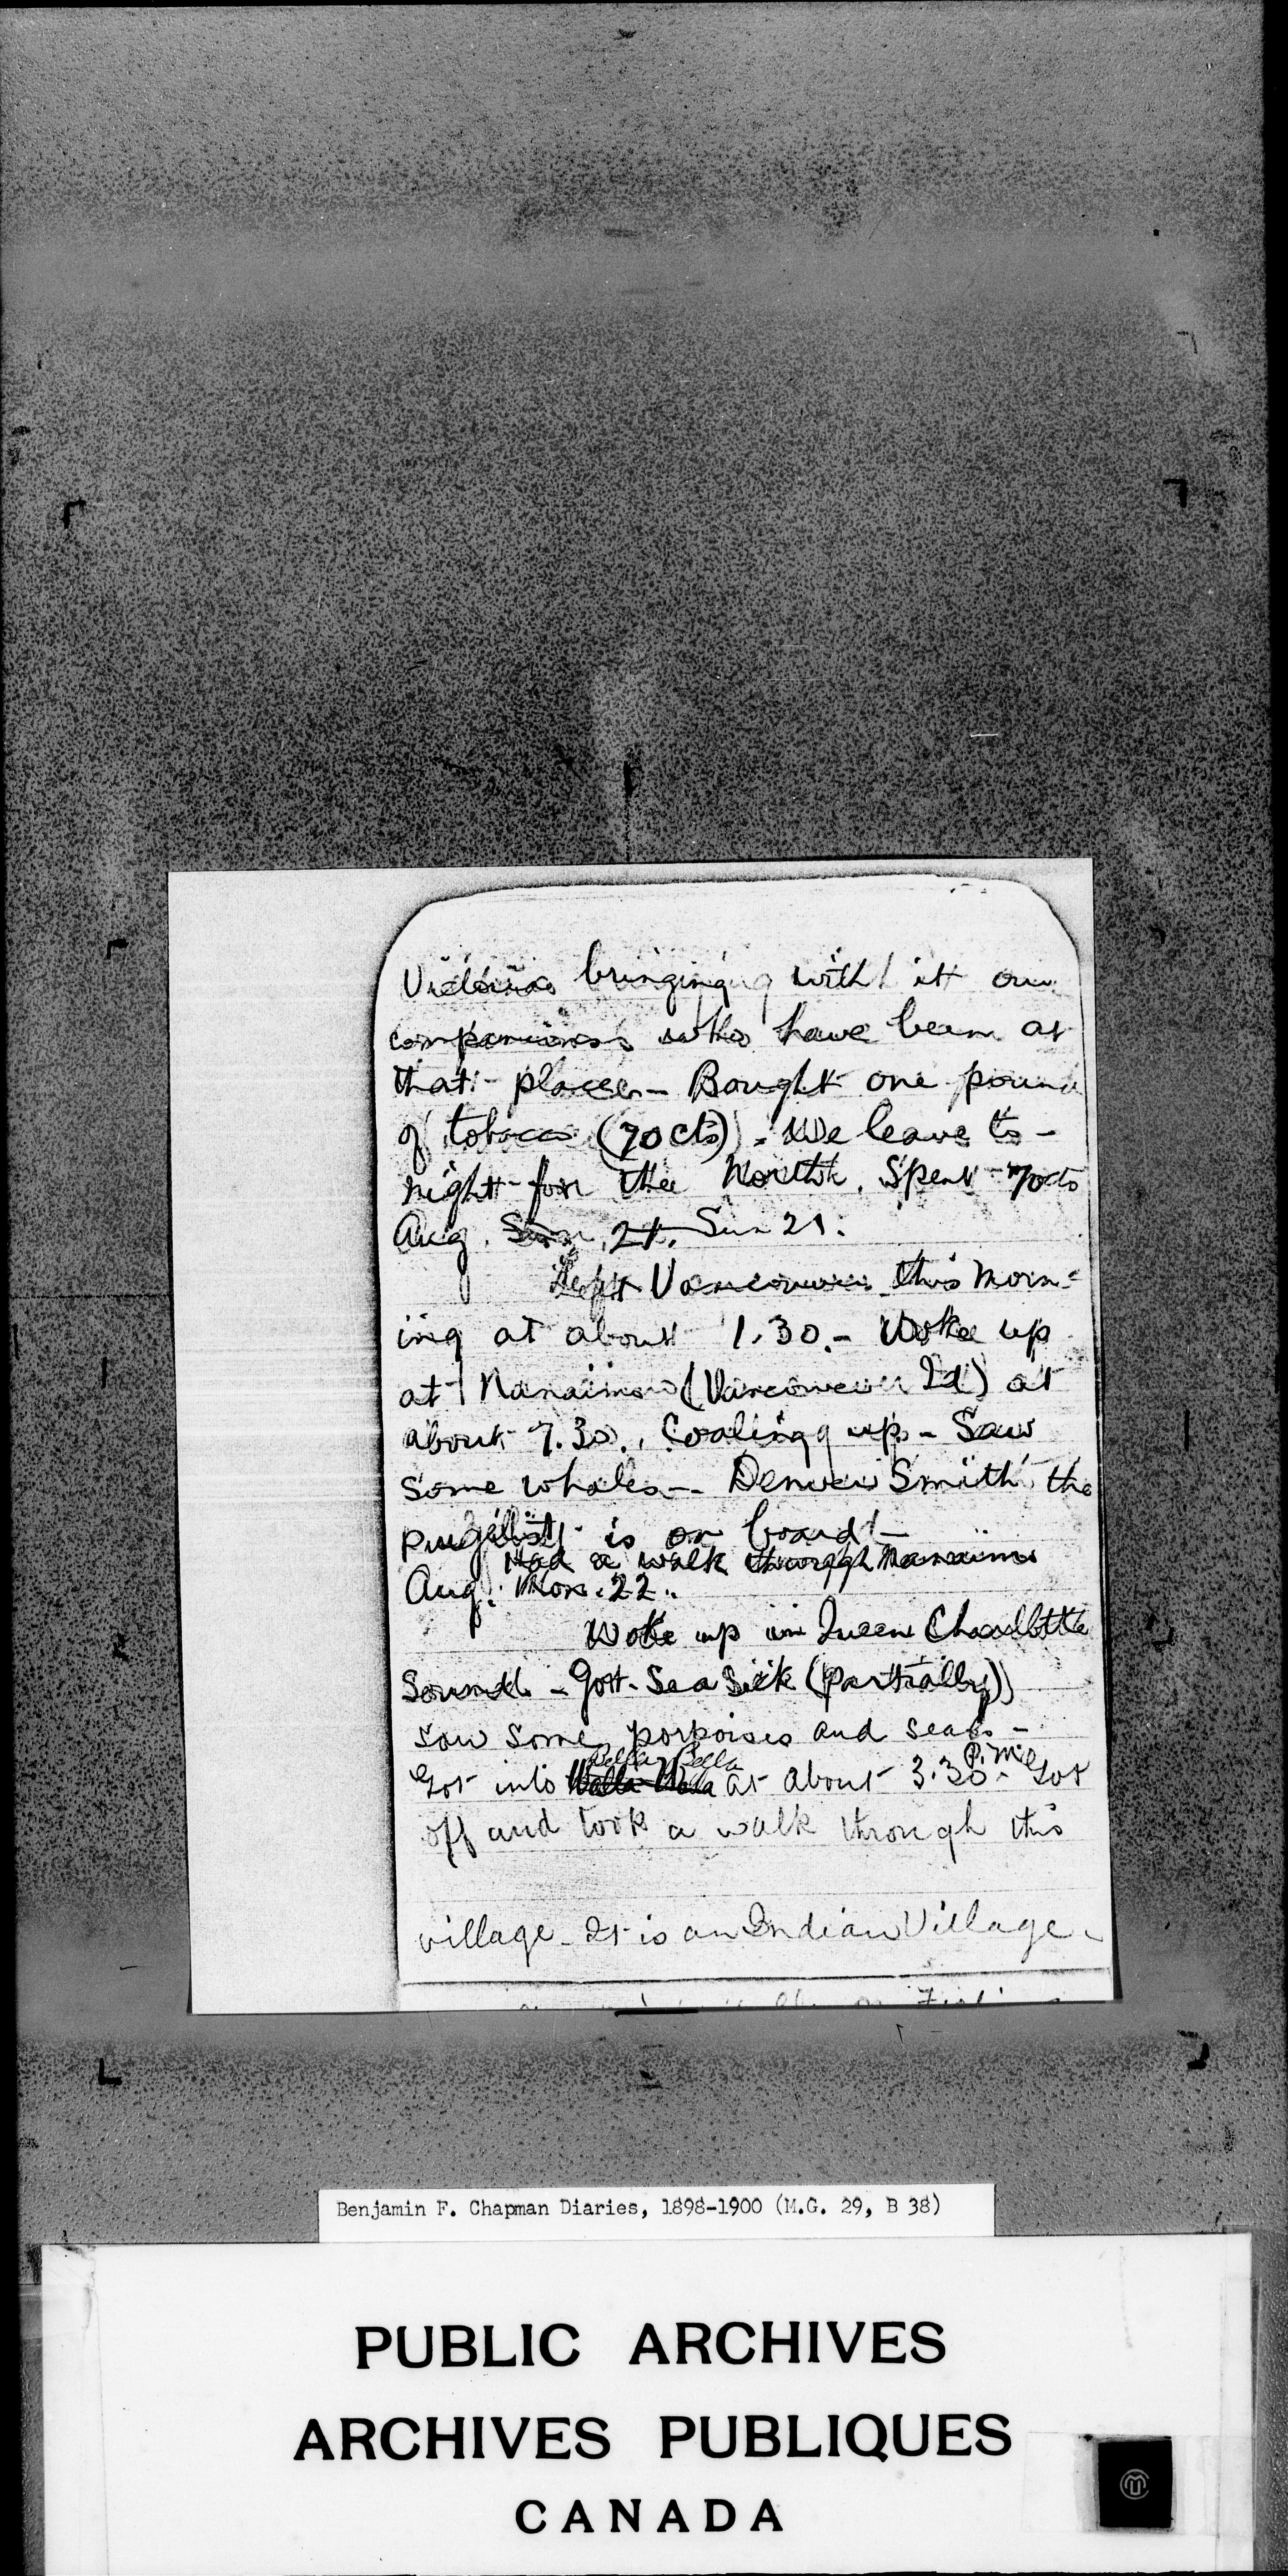 Victoria bringing with it our
companions who have been at
that place - Bought one pound
of tobacco (70cts). We leave to-
night for the North. Spent 70cts
Aug. Sun 21. Sun 21.
Left Vancouver this morn-
ing at about 1.30. - Woke up
at Nanaimo (Vancouver Id) at
about 7.30. Coaling up - Saw
some whales - Denver Smith the
pugilist is on board -
Had a walk through Nanaimo
Aug. Mon. 22.
Woke up in Queen Charlotte
Sound - Got Sea Sick (partially)
saw some porpoises and seals -
Bella Bella P.M.
Got into Walla Walla at about 3.30 - Got
off and took a walk through this
village - It is an Indian Village -
Benjamin F. Chapman Diaries, 1898-1900 (M.G. 29, B 38)
PUBLIC ARCHIVES
ARCHIVES PUBLIQUES
CANADA